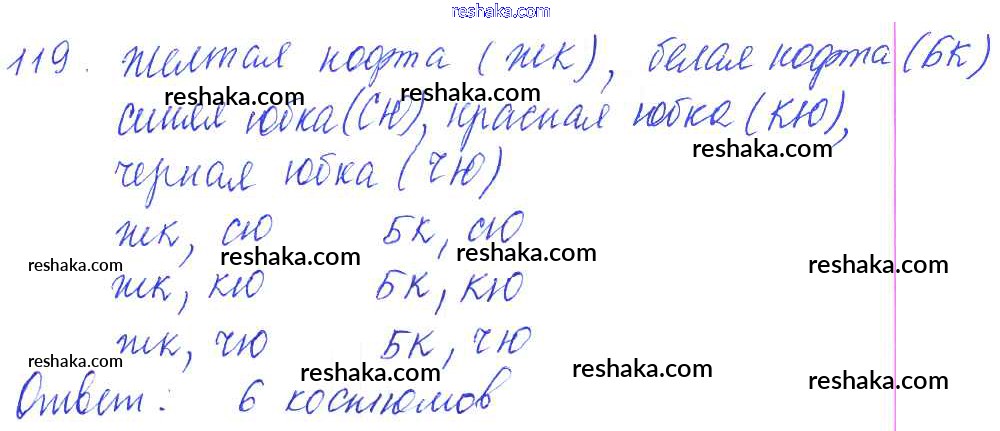 reshaka.com
119. Желтая кофта (ЖК), белая кофта (БК)
reshaka.com reshaka.com
синяя юбка (СЮ), красная юбка (КЮ),
reshaka.com
черная юбка (ЧЮ)
ЖК, СЮ БК, СЮ
reshaka.com reshaka.com reshaka.com reshaka.com
ЖК, КЮ БК, КЮ
ЖК, ЧЮ БК, ЧЮ
reshaka.com reshaka.com reshaka.com reshaka.com
Ответ: 6 костюмов